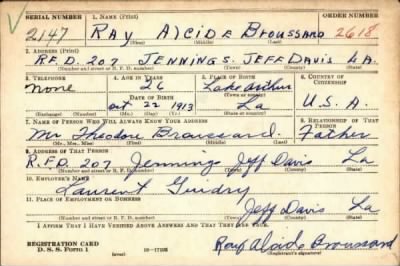 SERIAL NUMBER 1. NAME (Print) ORDER NUMBER
2147 RAY ALCIDE BROUSSARD 2618
(First) (Middle) (Last)
2. ADDRESS (Print)
R.F.D. 207 JENNINGS. JEFF DAVIS LA.
(Number and street or R. F. D. number) (Town) (County) (State)
3. TELEPHONE 4. AGE IN YEARS 5. PLACE OF BIRTH 6. COUNTRY OF CITIZENSHIP
None 26 Lake Arthur
DATE OF BIRTH (Town or county)
Oct 22 1913 La U.S.A.
(Exchange) (Number) (Mo.) (Day) (Yr.) (State or country)
7. NAME OF PERSON WHO WILL ALWAYS KNOW YOUR ADDRESS 8. RELATIONSHIP OF THAT PERSON
Mr. Theodore Broussard. Father
(Mr., Mrs., Miss) (First) (Middle) (Last)
9. ADDRESS OF THAT PERSON
R.F.D. 207 Jennings Jeff Davis La
(Number and street or R. F. D. number) (Town) (County) (State)
10. EMPLOYER'S NAME
Laurent Guidry
11. PLACE OF EMPLOYMENT OR BUSINESS
Jeff Davis La
(Number and street or R. F. D. number) (Town) (County) (State)
I AFFIRM THAT I HAVE VERIFIED ABOVE ANSWERS AND THAT THEY ARE TRUE.
REGISTRATION CARD
D. S. S. Form 1 (over) Ray Alcide Broussard
(Registrant's signature)